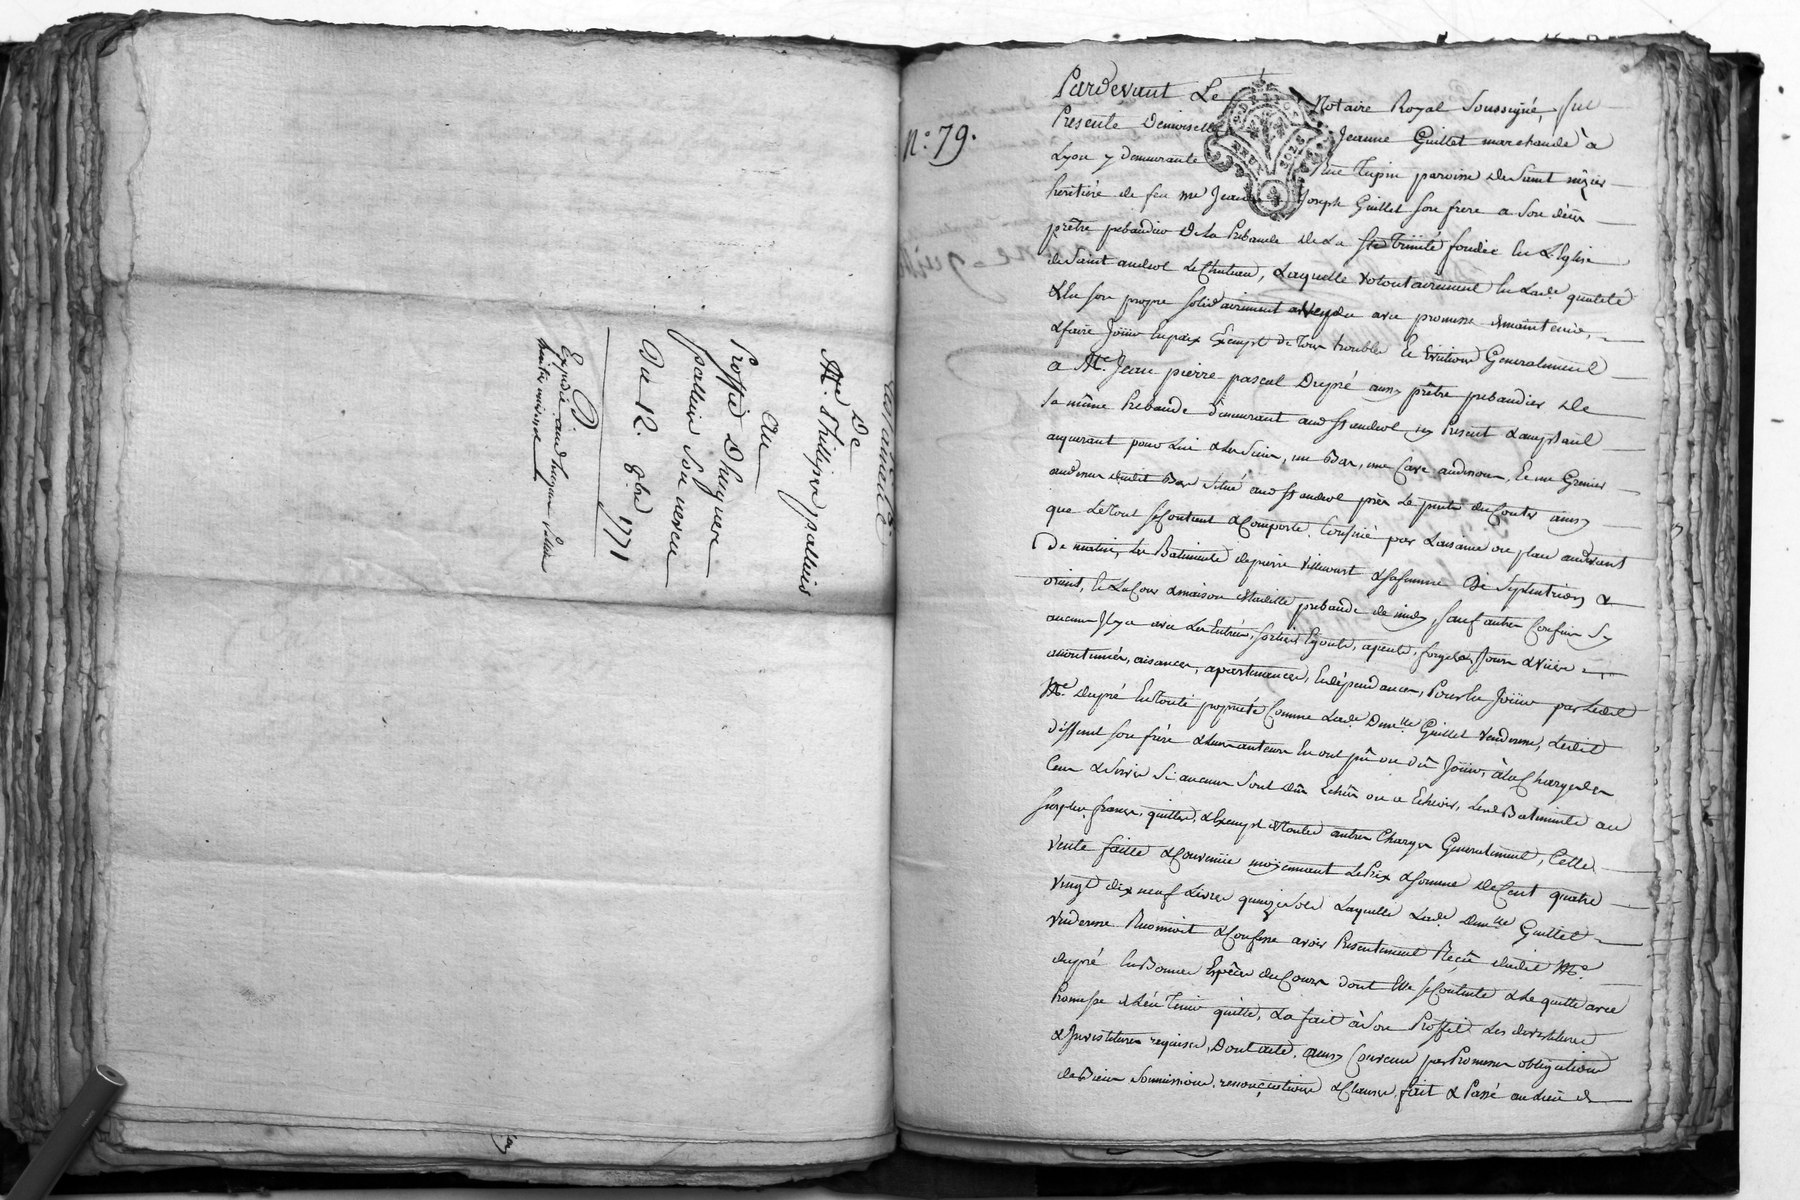 De
Me. Philippe palluis
Au
Proffit d'huguere
palluis son neveu
Du 12. 8bre 1771
N.° 79.
Pardevant Le Notaire Royal Soussigné, fut
Presente Demoiselle Jeanne Guillet marchande à
Lyon y demeurante Rue Tupin paroisse de Saint nizier
heritiére de feu me Jean Joseph Guillet son frere a son deces
prêtre prebandier de la Prebande de La ste Trinité fondée en L'Eglise
de Saint andeol Le Chateau, Laquelle volontairement en Lade. qualité
& en son propre solidairement a vendu avec promesse de maintenir,
& faire Jöuir en paix Exempt de Tous troubles et Evictions Generalement
a Me. Jean pierre pascal Dupré aussy prêtre prebandier de
la même Prebande demeurant aud st andeol icy Present & acceptant
aquerant pour Lui & les siens, un Bas, une Cave audessous, et un Grenier
audessus dudit Bas situé aud st andeol près Le puits du
que Le tout se Contient & Comporte. Confiné par Laisance ou place audevant
De matin, les Batiments de pierre & sa femme de Septentrion &
orient, et La Cour & maison de ladite prebande de midy, sauf autres Confins sy
aucuns Il y a avec les Entrées, sorties Egouts, Jours & vües
accoutumés, aisances, apartenances, et dépendances, Pour en Jöuir par Ledit
Me. Dupré en toute proprieté Comme Lade. Dmlle. Guillet venderesse, Ledit
déffunt son frére & leurs auteurs en ont pû ou dû Jöuir, à la Charge des
Cens & servis si aucuns sont dûs Echûs ou a Echeoir, Lesd. Batiments au
surplus francs, quittes, & Exempt de toutes autres Charges Generalement, Cette
vente faitte & Convenüe moÿennant Le Prix & somme de Cent quatre
vingt dix neuf Livres quinze sols Laquelle Lade. Dmlle. Guillet
venderesse Reconnoit & Confesse avoir Presentement Reçû dudit Me.
dupré en Bonnes Espêces du Cours dont Elle se Contente & Le quitte avec
Promesse de L'en Tenir quitte, La fait à son Proffit Les devestitures
& Investitures requises, Dont acte. ainsy Convenu par Promesses obligations
de Biens Soumissions, renonciations & Clauses. fait & Passé audit